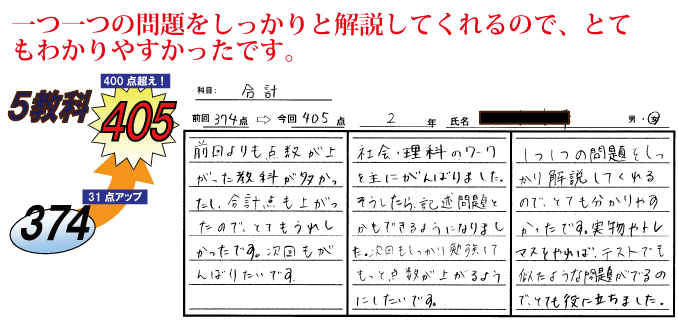 一つ一つの問題をしっかりと解説してくれるので、とて
もわかりやすかったです。
400点超え！
5教科
405
31点アップ
374
科目： 合計
前回 374点 ⇨ 今回 405 点 2 年 氏名 男・女
前回よりも点数が上
がった教科が多かっ
たし、合計点も上がっ
たので、とてもうれし
かったです。次回もが
んばりたいです
社会・理科のワーク
を主にがんばりました。
そうしたら、記述問題と
かもできるようになりまし
た。次回もしっかり勉強して
もっと点数が上がるよう
にしたいです。
1つ1つの問題をしっ
かり解説してくれる
ので、とても分かりやす
かったです。実物やトレ
マスをやれば、テストでも
似たような問題がでるの
で、とても役に立ちました。